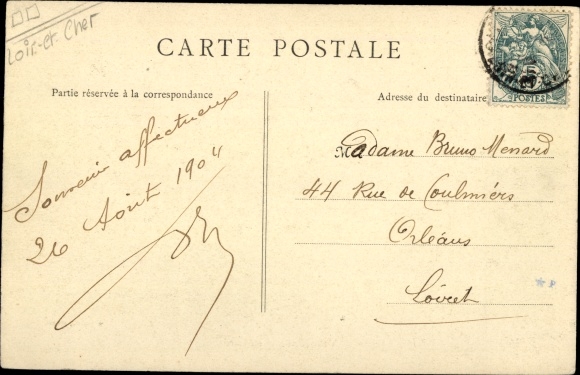 Loir-et-Cher
CARTE POSTALE
Partie réservée à la correspondance
Adresse du destinataire
Souvenir affectueux
26 Août 1904
Madame Bruno Menard
44 Rue de Coulmiers
Orléans
Loiret
5
POSTES